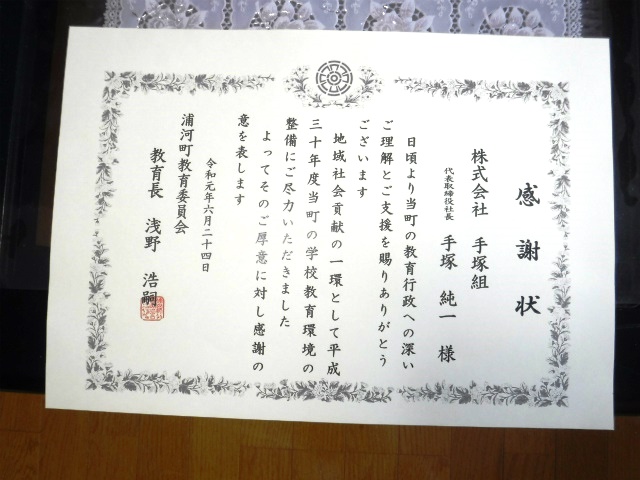 感謝状
株式会社 手塚組
代表取締役社長 手塚 純一 様
日頃より当町の教育行政への深い
ご理解とご支援を賜りありがとう
ございます
地域社会貢献の一環として平成
三十年度当町の学校教育環境の
整備にご尽力いただきました
よってそのご厚意に対し感謝の
意を表します
令和元年六月二十四日
浦河町教育委員会
教育長 浅野 浩嗣